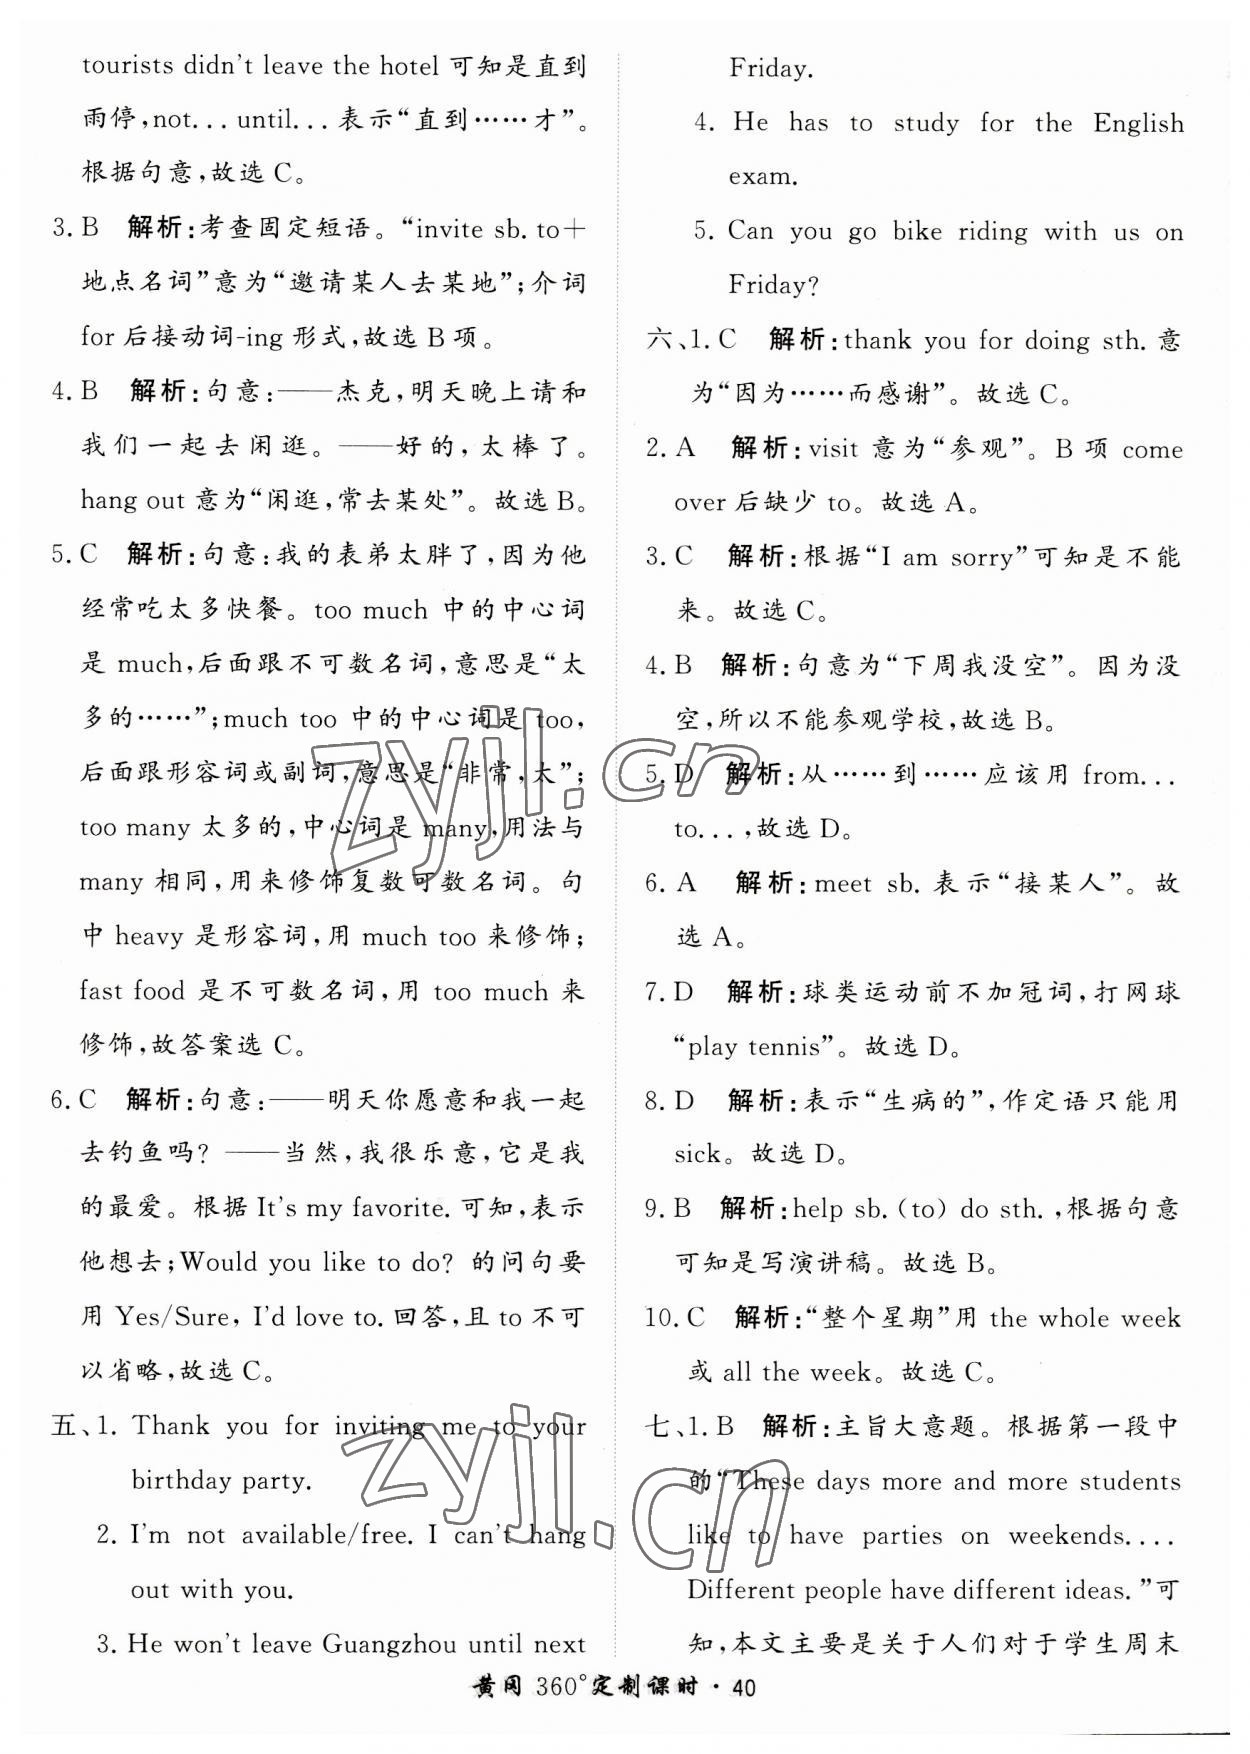 tourists didn't leave the hotel 可知是直到
雨停,not...until...表示“直到……才”。
根据句意,故选 C。
3. B 解析:考查固定短语。“invite sb. to+
地点名词”意为“邀请某人去某地”;介词
for 后接动词-ing 形式,故选 B 项。
4. B 解析:句意:——杰克,明天晚上请和
我们一起去闲逛。——好的,太棒了。
hang out 意为“闲逛,常去某处”。故选 B。
5. C 解析:句意:我的表弟太胖了,因为他
经常吃太多快餐。too much 中的中心词
是 much,后面跟不可数名词,意思是“太
多的……”;much too 中的中心词是 too,
后面跟形容词或副词,意思是“非常,太”;
too many 太多的,中心词是 many,用法与
many 相同,用来修饰复数可数名词。句
中 heavy 是形容词,用 much too 来修饰;
fast food 是不可数名词,用 too much 来
修饰,故答案选 C。
6. C 解析:句意:——明天你愿意和我一起
去钓鱼吗?——当然,我很乐意,它是我
的最爱。根据 It's my favorite. 可知,表示
他想去;Would you like to do? 的问句要
用 Yes/Sure, I'd love to. 回答,且 to 不可
以省略,故选 C。
五、1. Thank you for inviting me to your
birthday party.
2. I'm not available/free. I can't hang
out with you.
3. He won't leave Guangzhou until next
Friday.
4. He has to study for the English
exam.
5. Can you go bike riding with us on
Friday?
六、1. C 解析:thank you for doing sth. 意
为“因为……而感谢”。故选 C。
2. A 解析:visit 意为“参观”。B 项 come
over 后缺少 to。故选 A。
3. C 解析:根据“I am sorry”可知是不能
来。故选 C。
4. B 解析:句意为“下周我没空”。因为没
空,所以不能参观学校,故选 B。
5. D 解析:从……到……应该用 from...
to...,故选 D。
6. A 解析:meet sb. 表示“接某人”。故
选 A。
7. D 解析:球类运动前不加冠词,打网球
“play tennis”。故选 D。
8. D 解析:表示“生病的”,作定语只能用
sick。故选 D。
9. B 解析:help sb. (to) do sth.,根据句意
可知是写演讲稿。故选 B。
10. C 解析:“整个星期”用 the whole week
或 all the week。故选 C。
七、1. B 解析:主旨大意题。根据第一段中
的“These days more and more students
like to have parties on weekends....
Different people have different ideas.”可
知,本文主要是关于人们对于学生周末
黄冈 360°定制课时 · 40
zyjl.cn
zyjl.cn